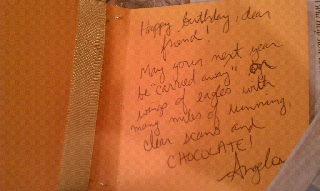 Happy birthday, dear
friend!
May your next year
be "carried away" on
wings of eagles with
many miles of running,
clear scans and
CHOCOLATE!
Angela